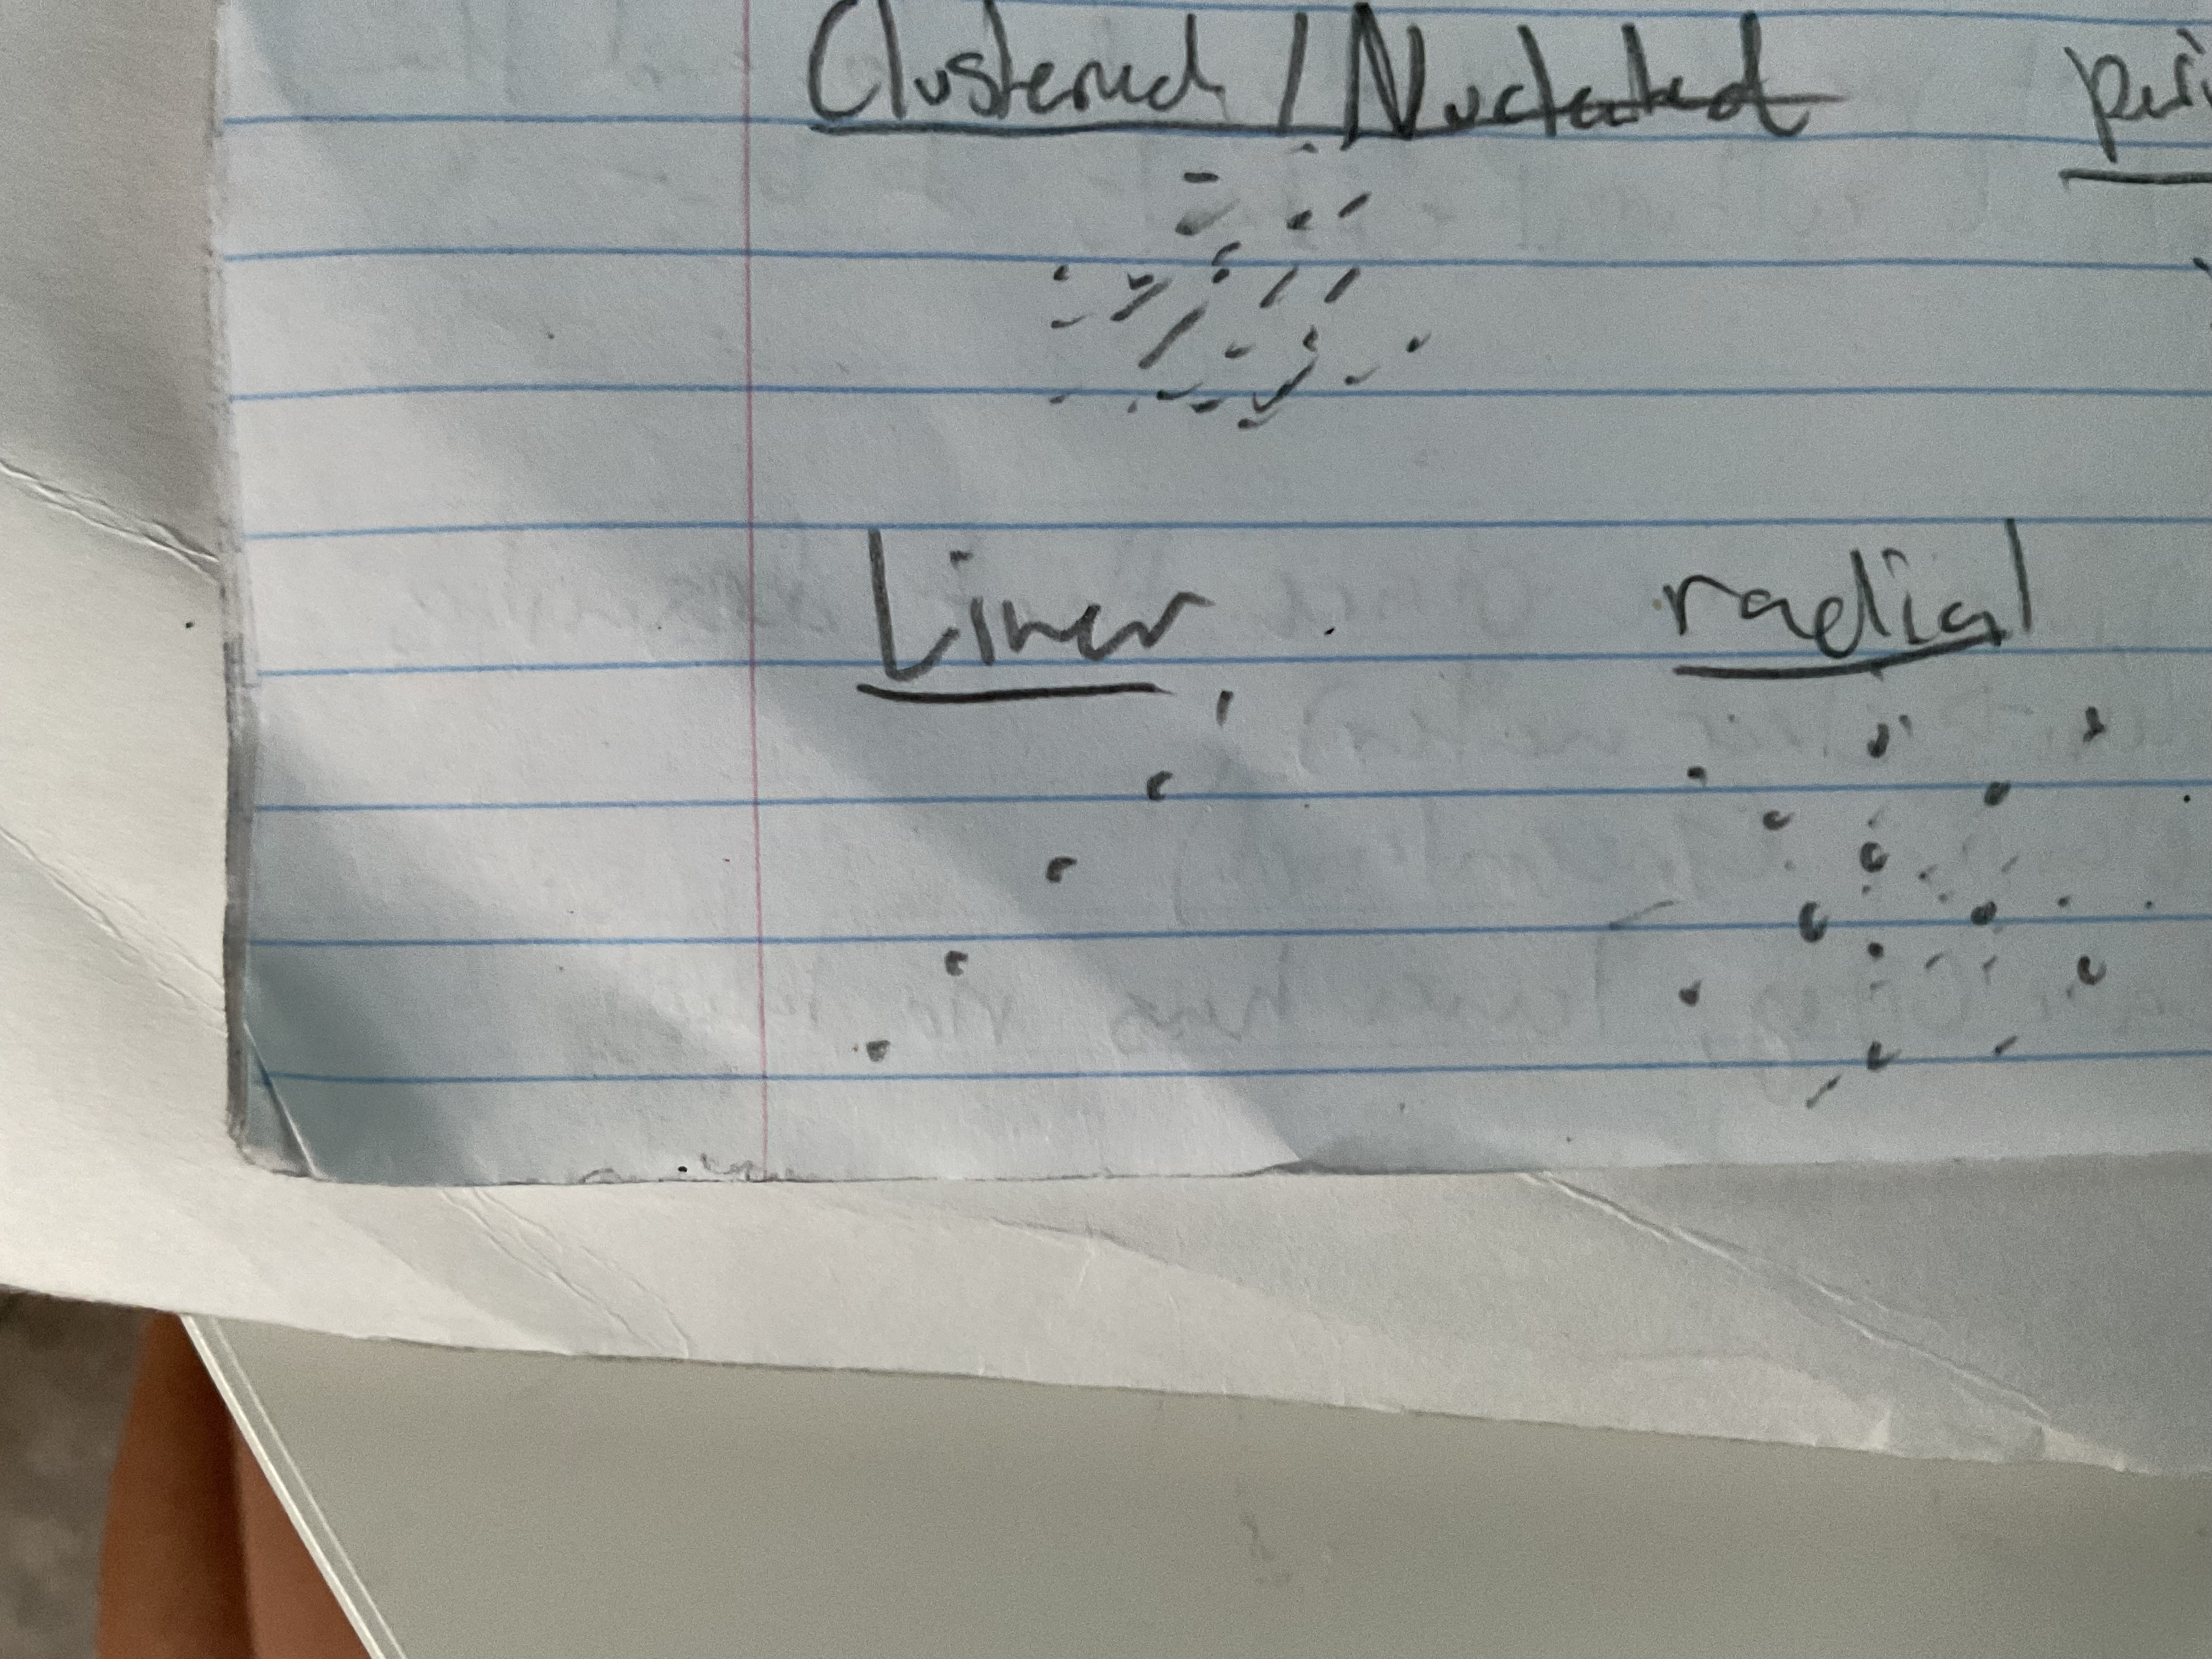 Clustered / Nucleated
Liner
radial